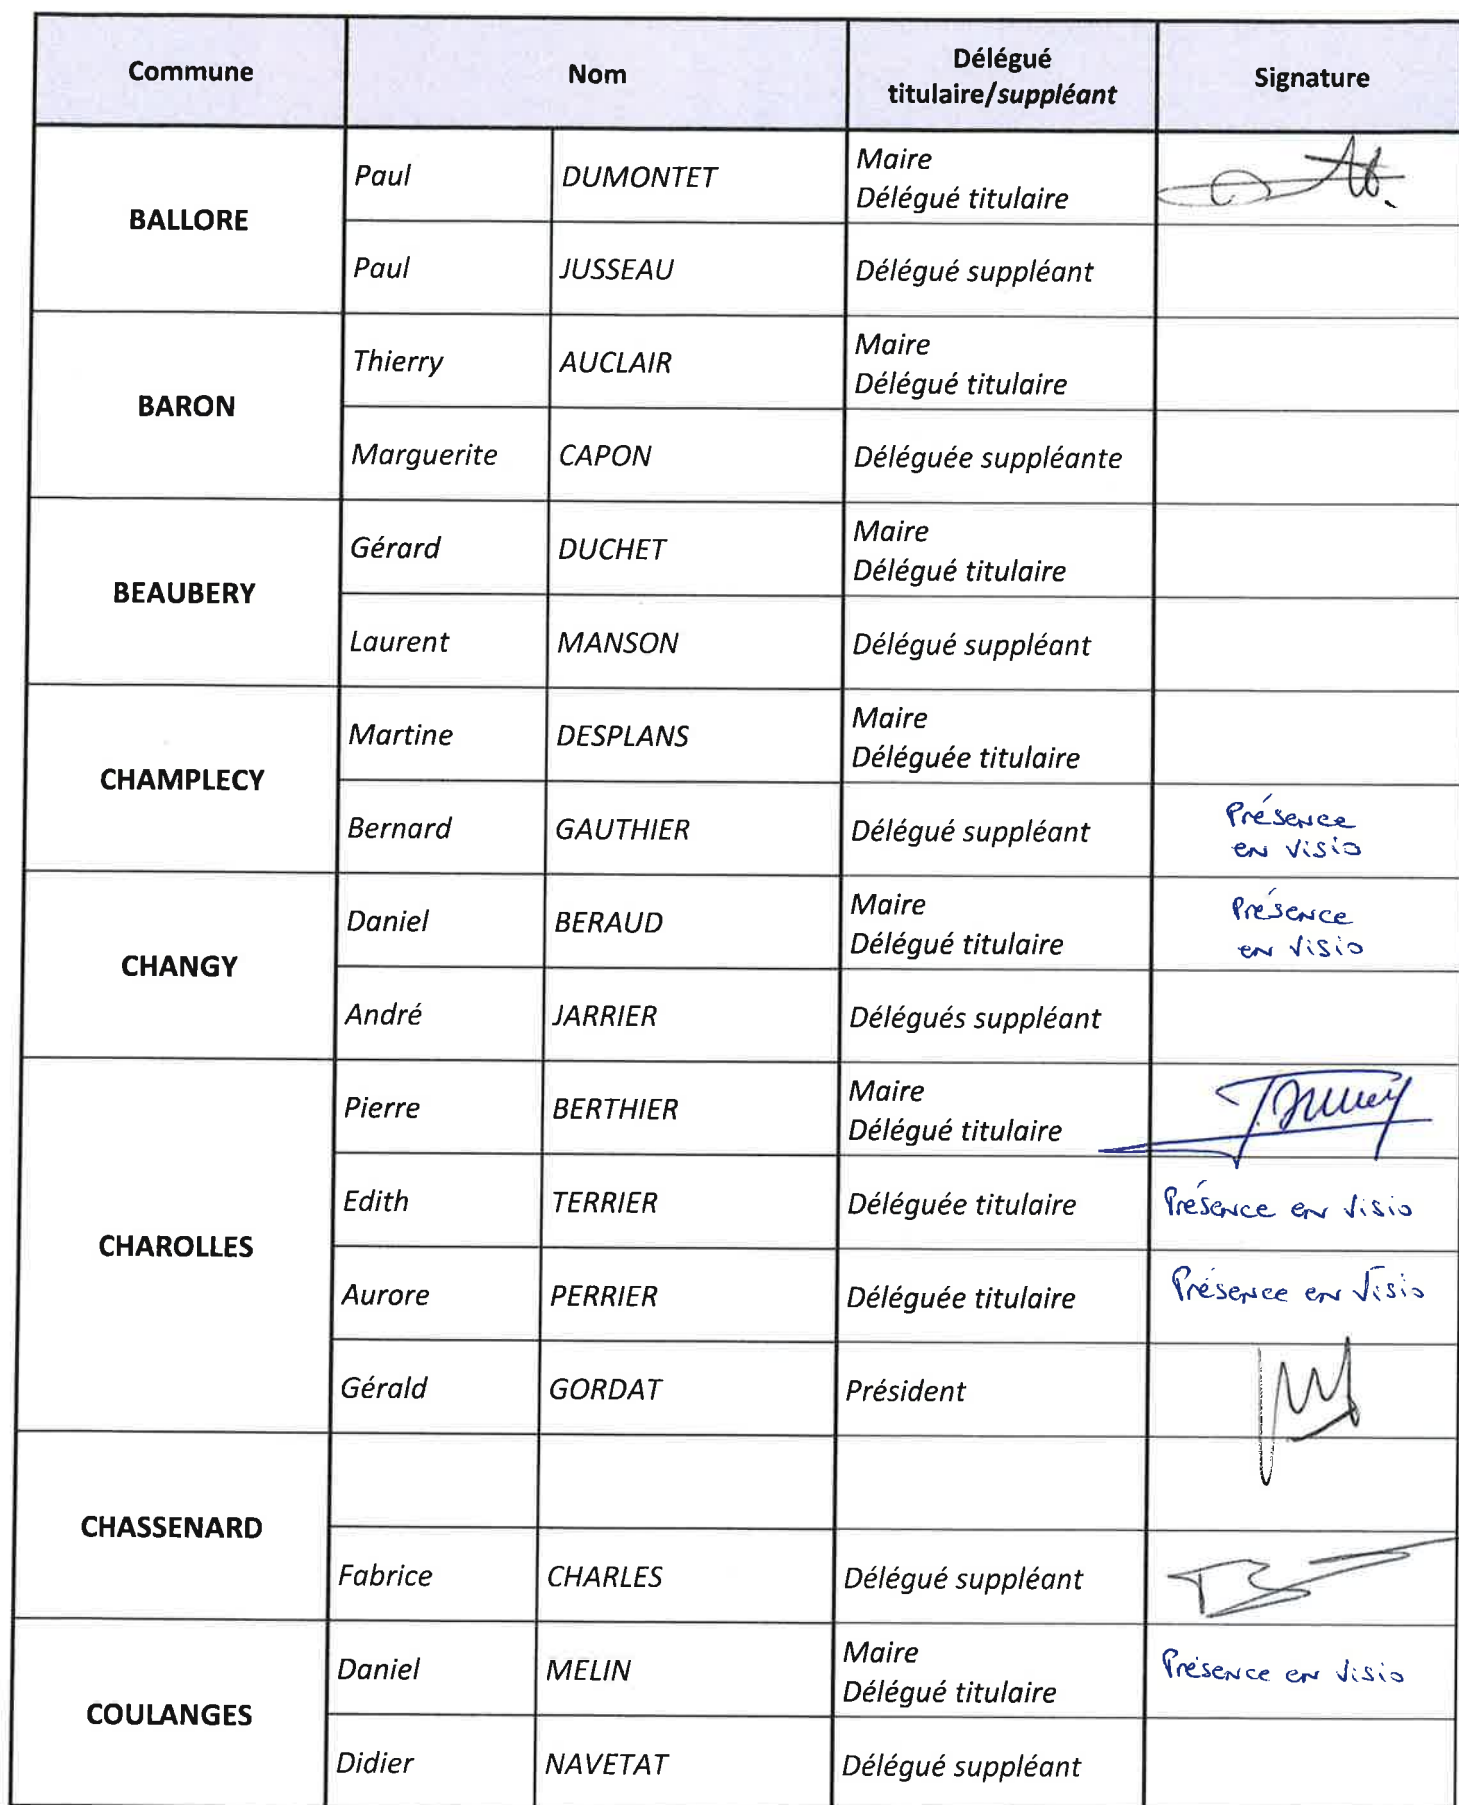 Commune
Nom
Délégué
titulaire/suppléant
Signature
BALLORE
Paul
DUMONTET
Maire
Délégué titulaire
Paul
JUSSEAU
Délégué suppléant
BARON
Thierry
AUCLAIR
Maire
Délégué titulaire
Marguerite
CAPON
Déléguée suppléante
BEAUBERY
Gérard
DUCHET
Maire
Délégué titulaire
Laurent
MANSON
Délégué suppléant
CHAMPLECY
Martine
DESPLANS
Maire
Déléguée titulaire
Bernard
GAUTHIER
Délégué suppléant
Présence
en visio
CHANGY
Daniel
BERAUD
Maire
Délégué titulaire
Présence
en visio
André
JARRIER
Délégués suppléant
CHAROLLES
Pierre
BERTHIER
Maire
Délégué titulaire
Edith
TERRIER
Déléguée titulaire
Présence en visio
Aurore
PERRIER
Déléguée titulaire
Présence en visio
Gérald
GORDAT
Président
CHASSENARD
Fabrice
CHARLES
Délégué suppléant
COULANGES
Daniel
MELIN
Maire
Délégué titulaire
Présence en visio
Didier
NAVETAT
Délégué suppléant